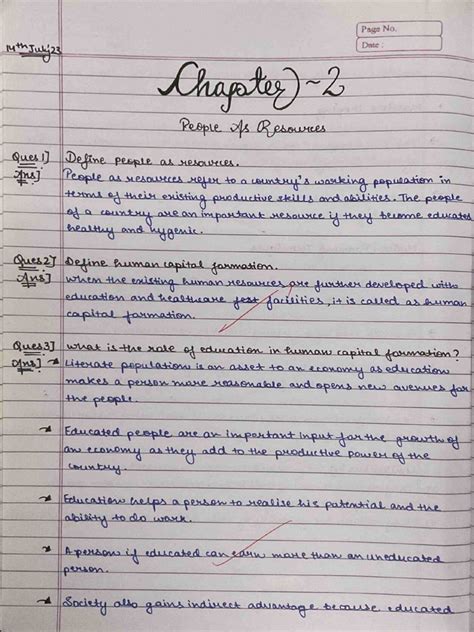 Page No.
Date :
14th July 23
Chapter - 2
People As Resources
Ques 1] Define people as resources.
Ans] People as resources refer to a country's working population in
terms of their existing productive skills and abilities. The people
of a country are an important resource if they become educated
healthy and hygenic.
Ques 2] Define human capital formation.
Ans] When the existing human resources are further developed with
education and healthcare facilities, it is called as human
capital formation.
Ques 3] What is the role of education in human capital formation?
Ans] → Literate population is an asset to an economy as education
makes a person more reasonable and opens new avenues for
the people.
→ Educated people are an important input for the growth of
an economy as they add to the productive power of the
country.
→ Education helps a person to realise his potential and the
ability to do work.
→ A person if educated can earn more than an uneducated
person.
→ Society also gains indirect advantage because educated